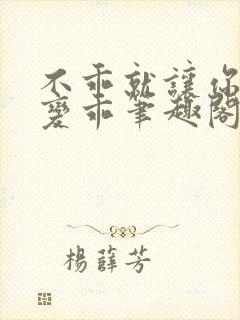 不乖就讓你
變乖筆趣閣
楊薛芳